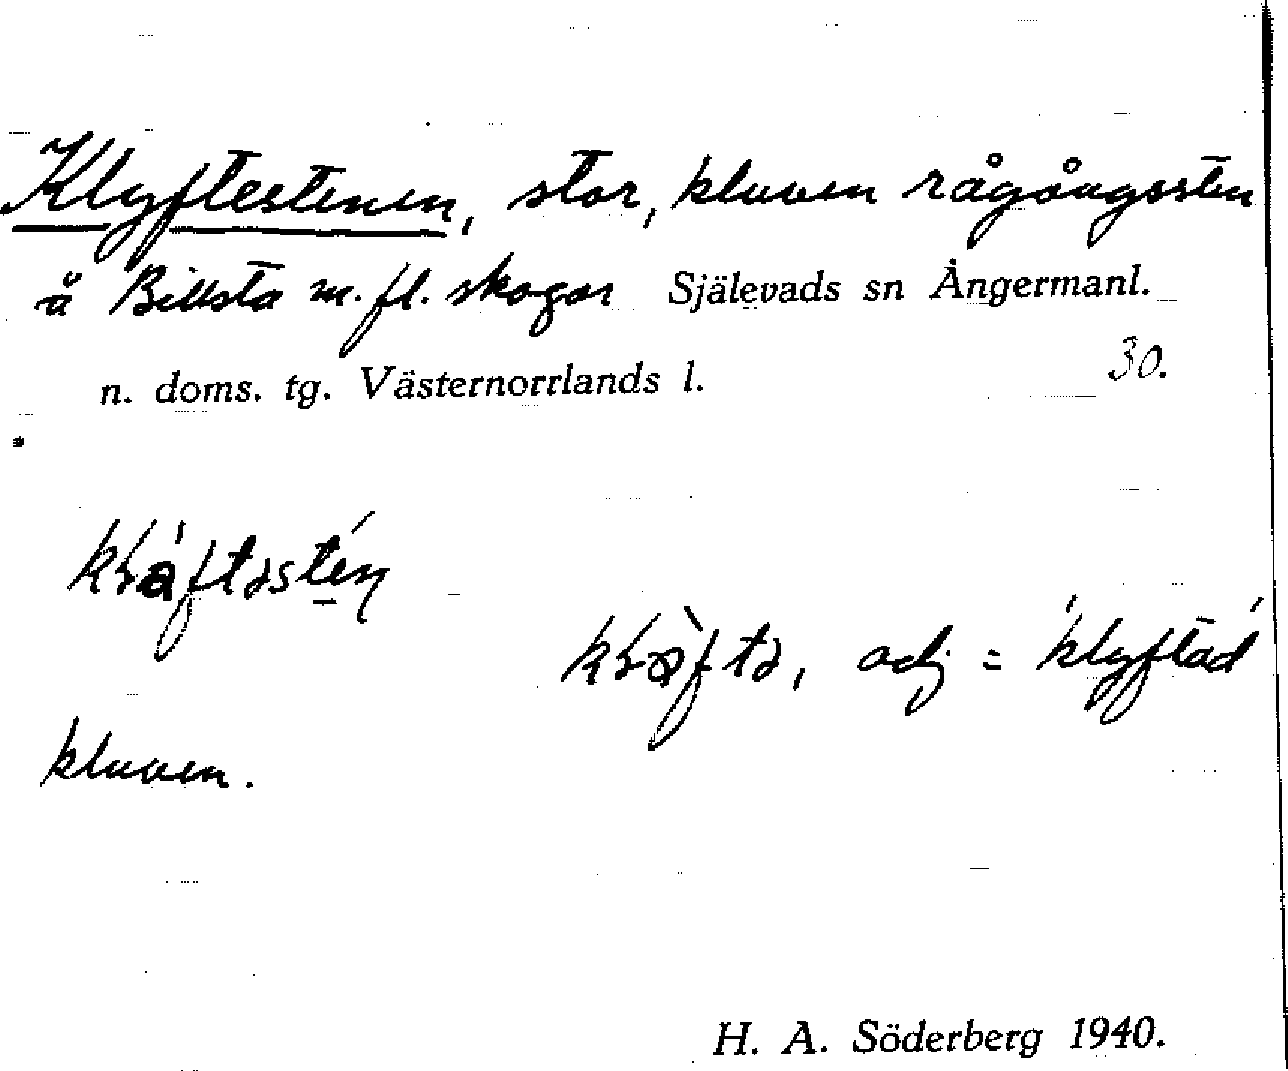 Klyftestenen, stor, kluven rågångssten
å Billsta m.fl. skogar Själevads sn Ångermanl.
n. doms. tg. Västernorrlands l. 30.
adj = 'klyftad'
kluven.
H. A. Söderberg 1940.